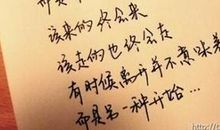 该来的终会来
该走的也终会走
有时候离开并不意味着
而是另一种开始…